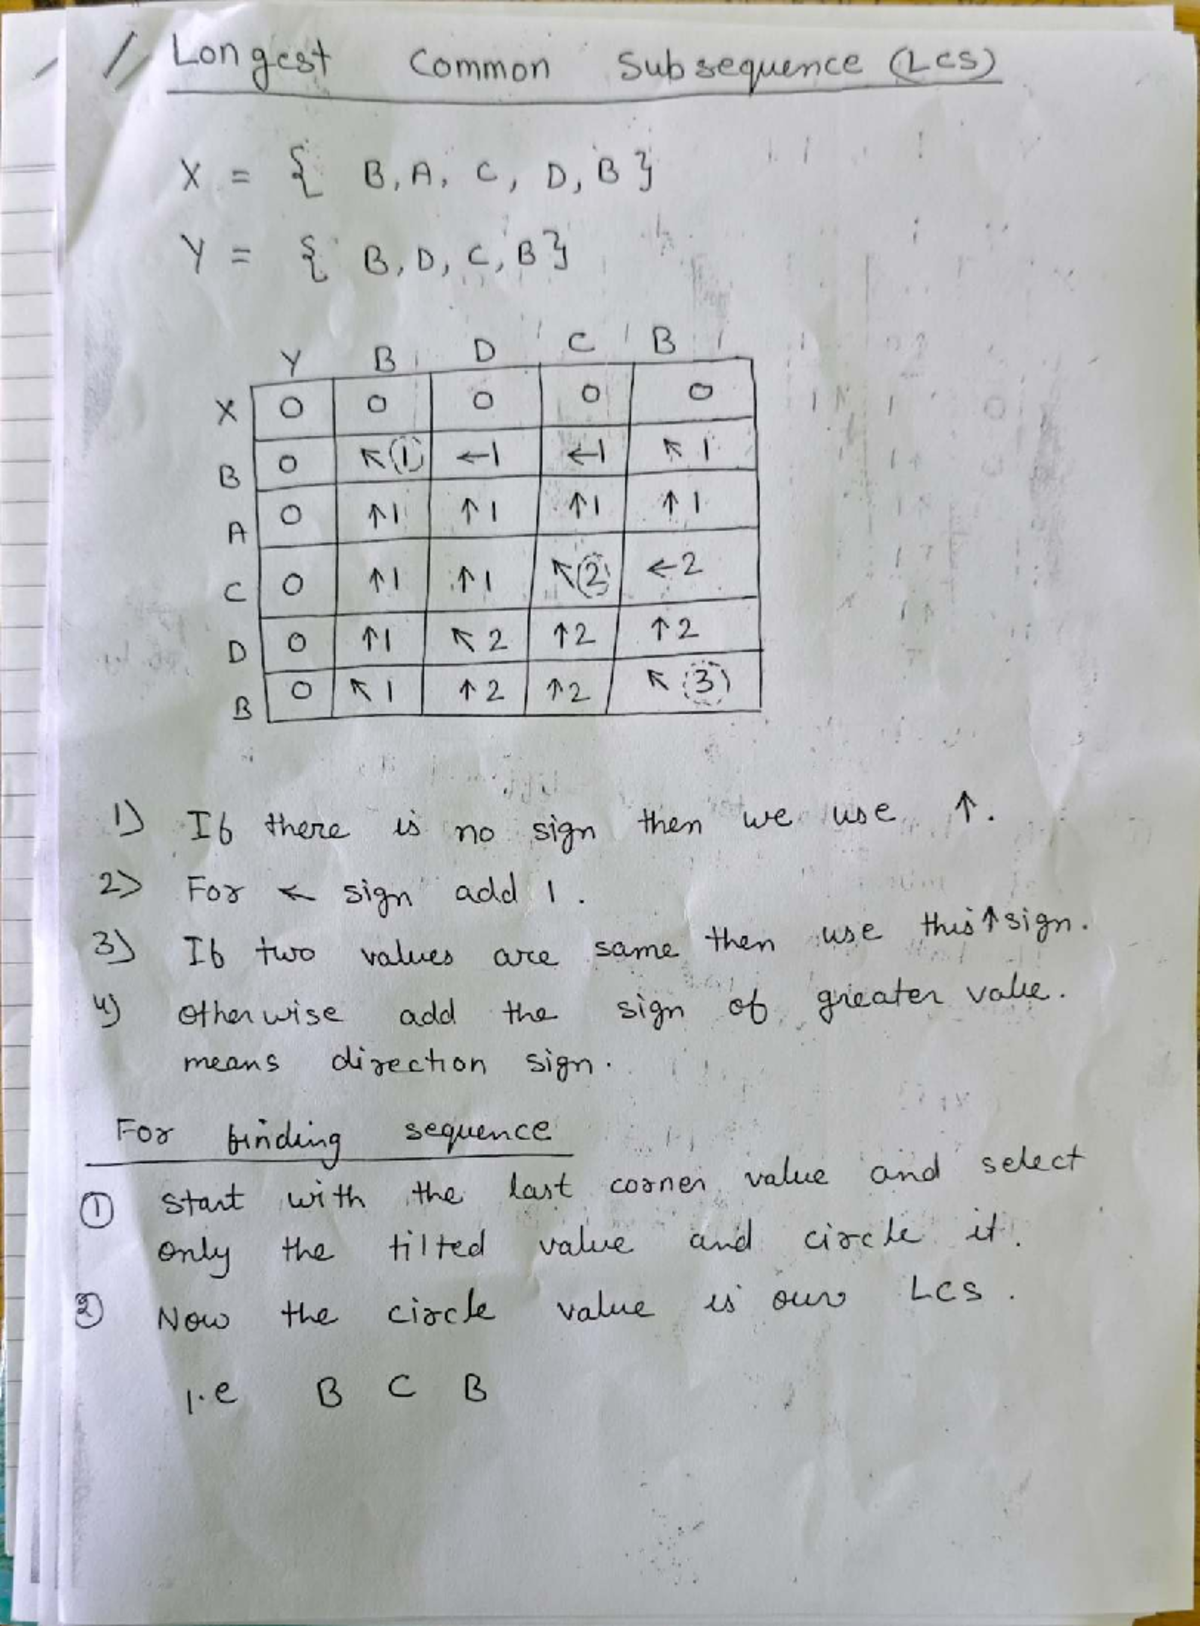 Longest Common Subsequence (LCS)
X = { B, A, C, D, B }
Y = { B, D, C, B }
Y B D C B
X 0 0 0 0 0
B 0 ↖1 ←1 ←1 ↖1
A 0 ↑1 ↑1 ↑1 ↑1
C 0 ↑1 ↑1 ↖2 ←2
D 0 ↑1 ↖2 ↑2 ↑2
B 0 ↖1 ↑2 ↑2 ↖3
1) If there is no sign then we use ↑.
2) For ↖ sign add 1.
3) If two values are same then use this ↑ sign.
4) otherwise add the sign of greater value.
means direction sign.
For finding sequence
① start with the last corner value and select
only the tilted value and circle it.
② Now the circle value is our LCS.
i.e B C B